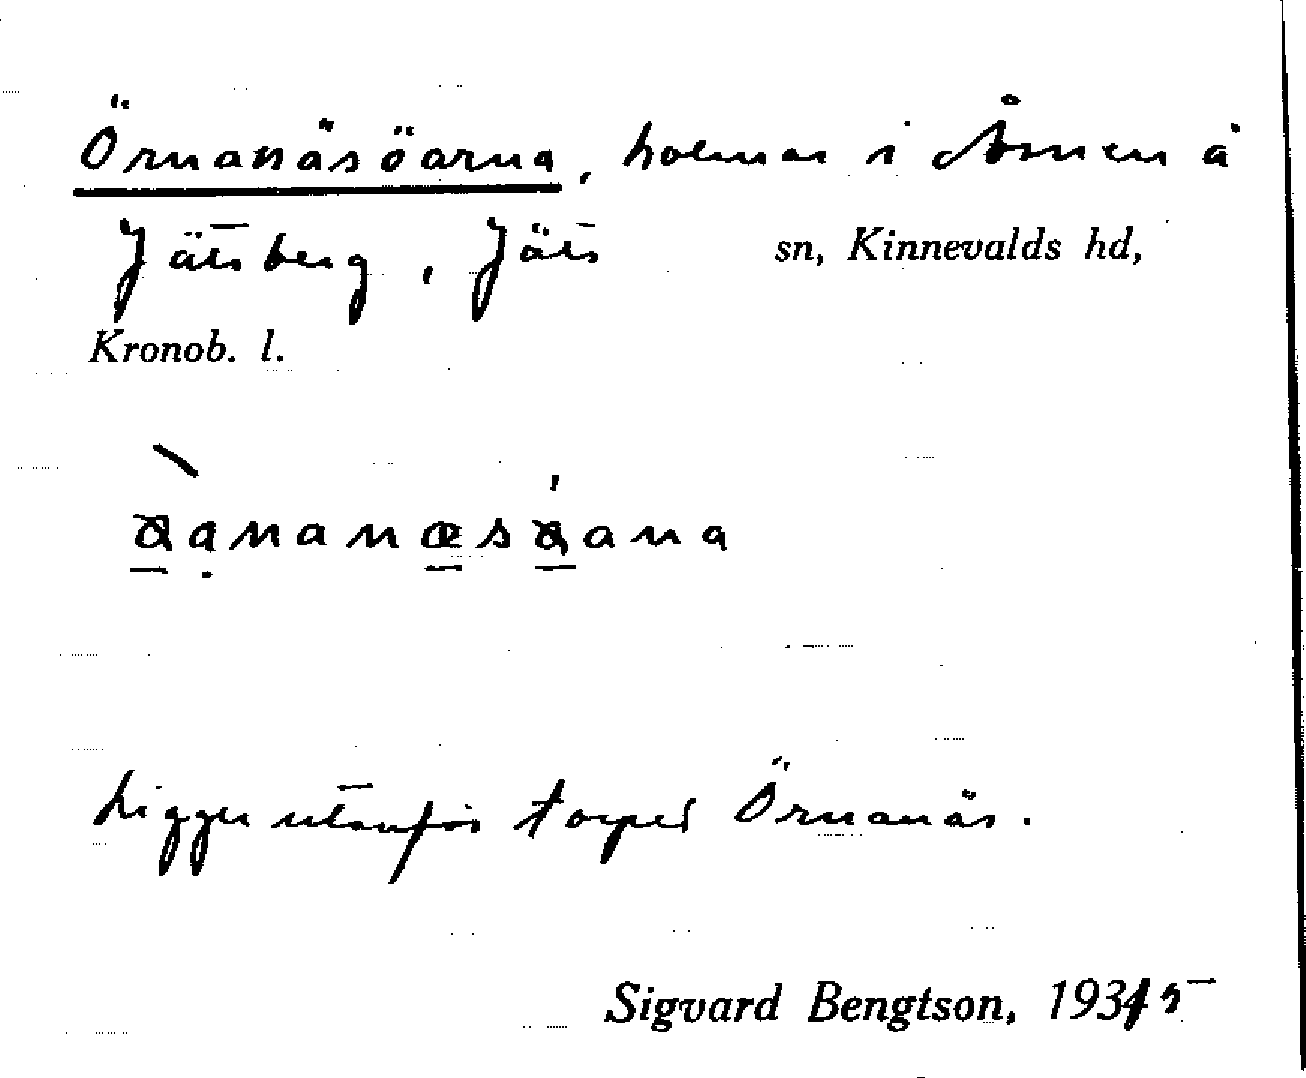 Örnanäsöarna, holmar i Åsnen å
Jätsberg, Jäts sn, Kinnevalds hd,
Kronob. l.
Ligger utanför torpet Örnanäs.
Sigvard Bengtson, 1935